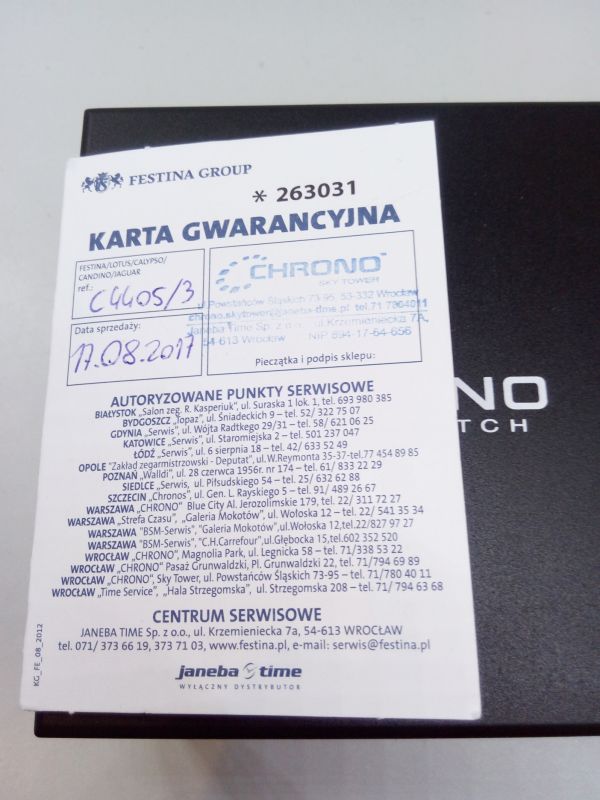 FESTINA GROUP
* 263031
KARTA GWARANCYJNA
FESTINA/LOTUS/CALYPSO/
CANDINO/JAGUAR
ref.:
C4405/3
Data sprzedaży:
17.08.2017
CHRONO
SKY TOWER
ul. Powstańców Śląskich 73-95, 53-332 Wrocław
chrono.skytower@janeba-time.pl tel.71 7804011
Janeba Time Sp. z o.o., ul.Krzemieniecka 7A,
54-613 Wrocław NIP 894-17-64-656
Pieczątka i podpis sklepu:
AUTORYZOWANE PUNKTY SERWISOWE
BIAŁYSTOK „Salon zeg. R. Kasperiuk", ul. Suraska 1 lok. 1, tel. 693 980 385
BYDGOSZCZ „Topaz", ul. Śniadeckich 9 – tel. 52/ 322 75 07
GDYNIA „Serwis", ul. Wójta Radtkego 29/31 – tel. 58/ 621 06 25
KATOWICE „Serwis", ul. Staromiejska 2 – tel. 501 237 047
ŁÓDŹ „Serwis", ul. 6 sierpnia 18 – tel. 42/ 633 52 49
OPOLE "Zakład zegarmistrzowski - Deputat", ul.W.Reymonta 35-37-tel.77 454 89 85
POZNAŃ „Walldi", ul. 28 czerwca 1956r. nr 174 – tel. 61/ 833 22 29
SIEDLCE „Serwis, ul. Piłsudskiego 54 – tel. 25/ 632 62 88
SZCZECIN „Chronos", ul. Gen. L. Rayskiego 5 – tel. 91/ 489 26 67
WARSZAWA „CHRONO" Blue City Al. Jerozolimskie 179, tel. 22/ 311 72 27
WARSZAWA „Strefa Czasu", „Galeria Mokotów", ul. Wołoska 12 – tel. 22/ 541 35 34
WARSZAWA "BSM-Serwis", "Galeria Mokotów",ul.Wołoska 12,tel.22/827 97 27
WARSZAWA "BSM-Serwis", "C.H.Carrefour",ul.Głębocka 15,tel.602 352 520
WROCŁAW „CHRONO", Magnolia Park, ul. Legnicka 58 – tel. 71/338 53 22
WROCŁAW „CHRONO" Pasaż Grunwaldzki, Pl. Grunwaldzki 22, tel. 71/794 69 89
WROCŁAW „CHRONO", Sky Tower, ul. Powstańców Śląskich 73-95 – tel. 71/780 40 11
WROCŁAW „Time Service", „Hala Strzegomska", ul. Strzegomska 208 – tel. 71/ 794 63 68
CENTRUM SERWISOWE
JANEBA TIME Sp. z o.o., ul. Krzemieniecka 7a, 54-613 WROCŁAW
tel. 071/ 373 66 19, 373 71 03, www.festina.pl, e-mail: serwis@festina.pl
janeba time
WYŁĄCZNY DYSTRYBUTOR
KG_FE_08_2012
NO
TCH